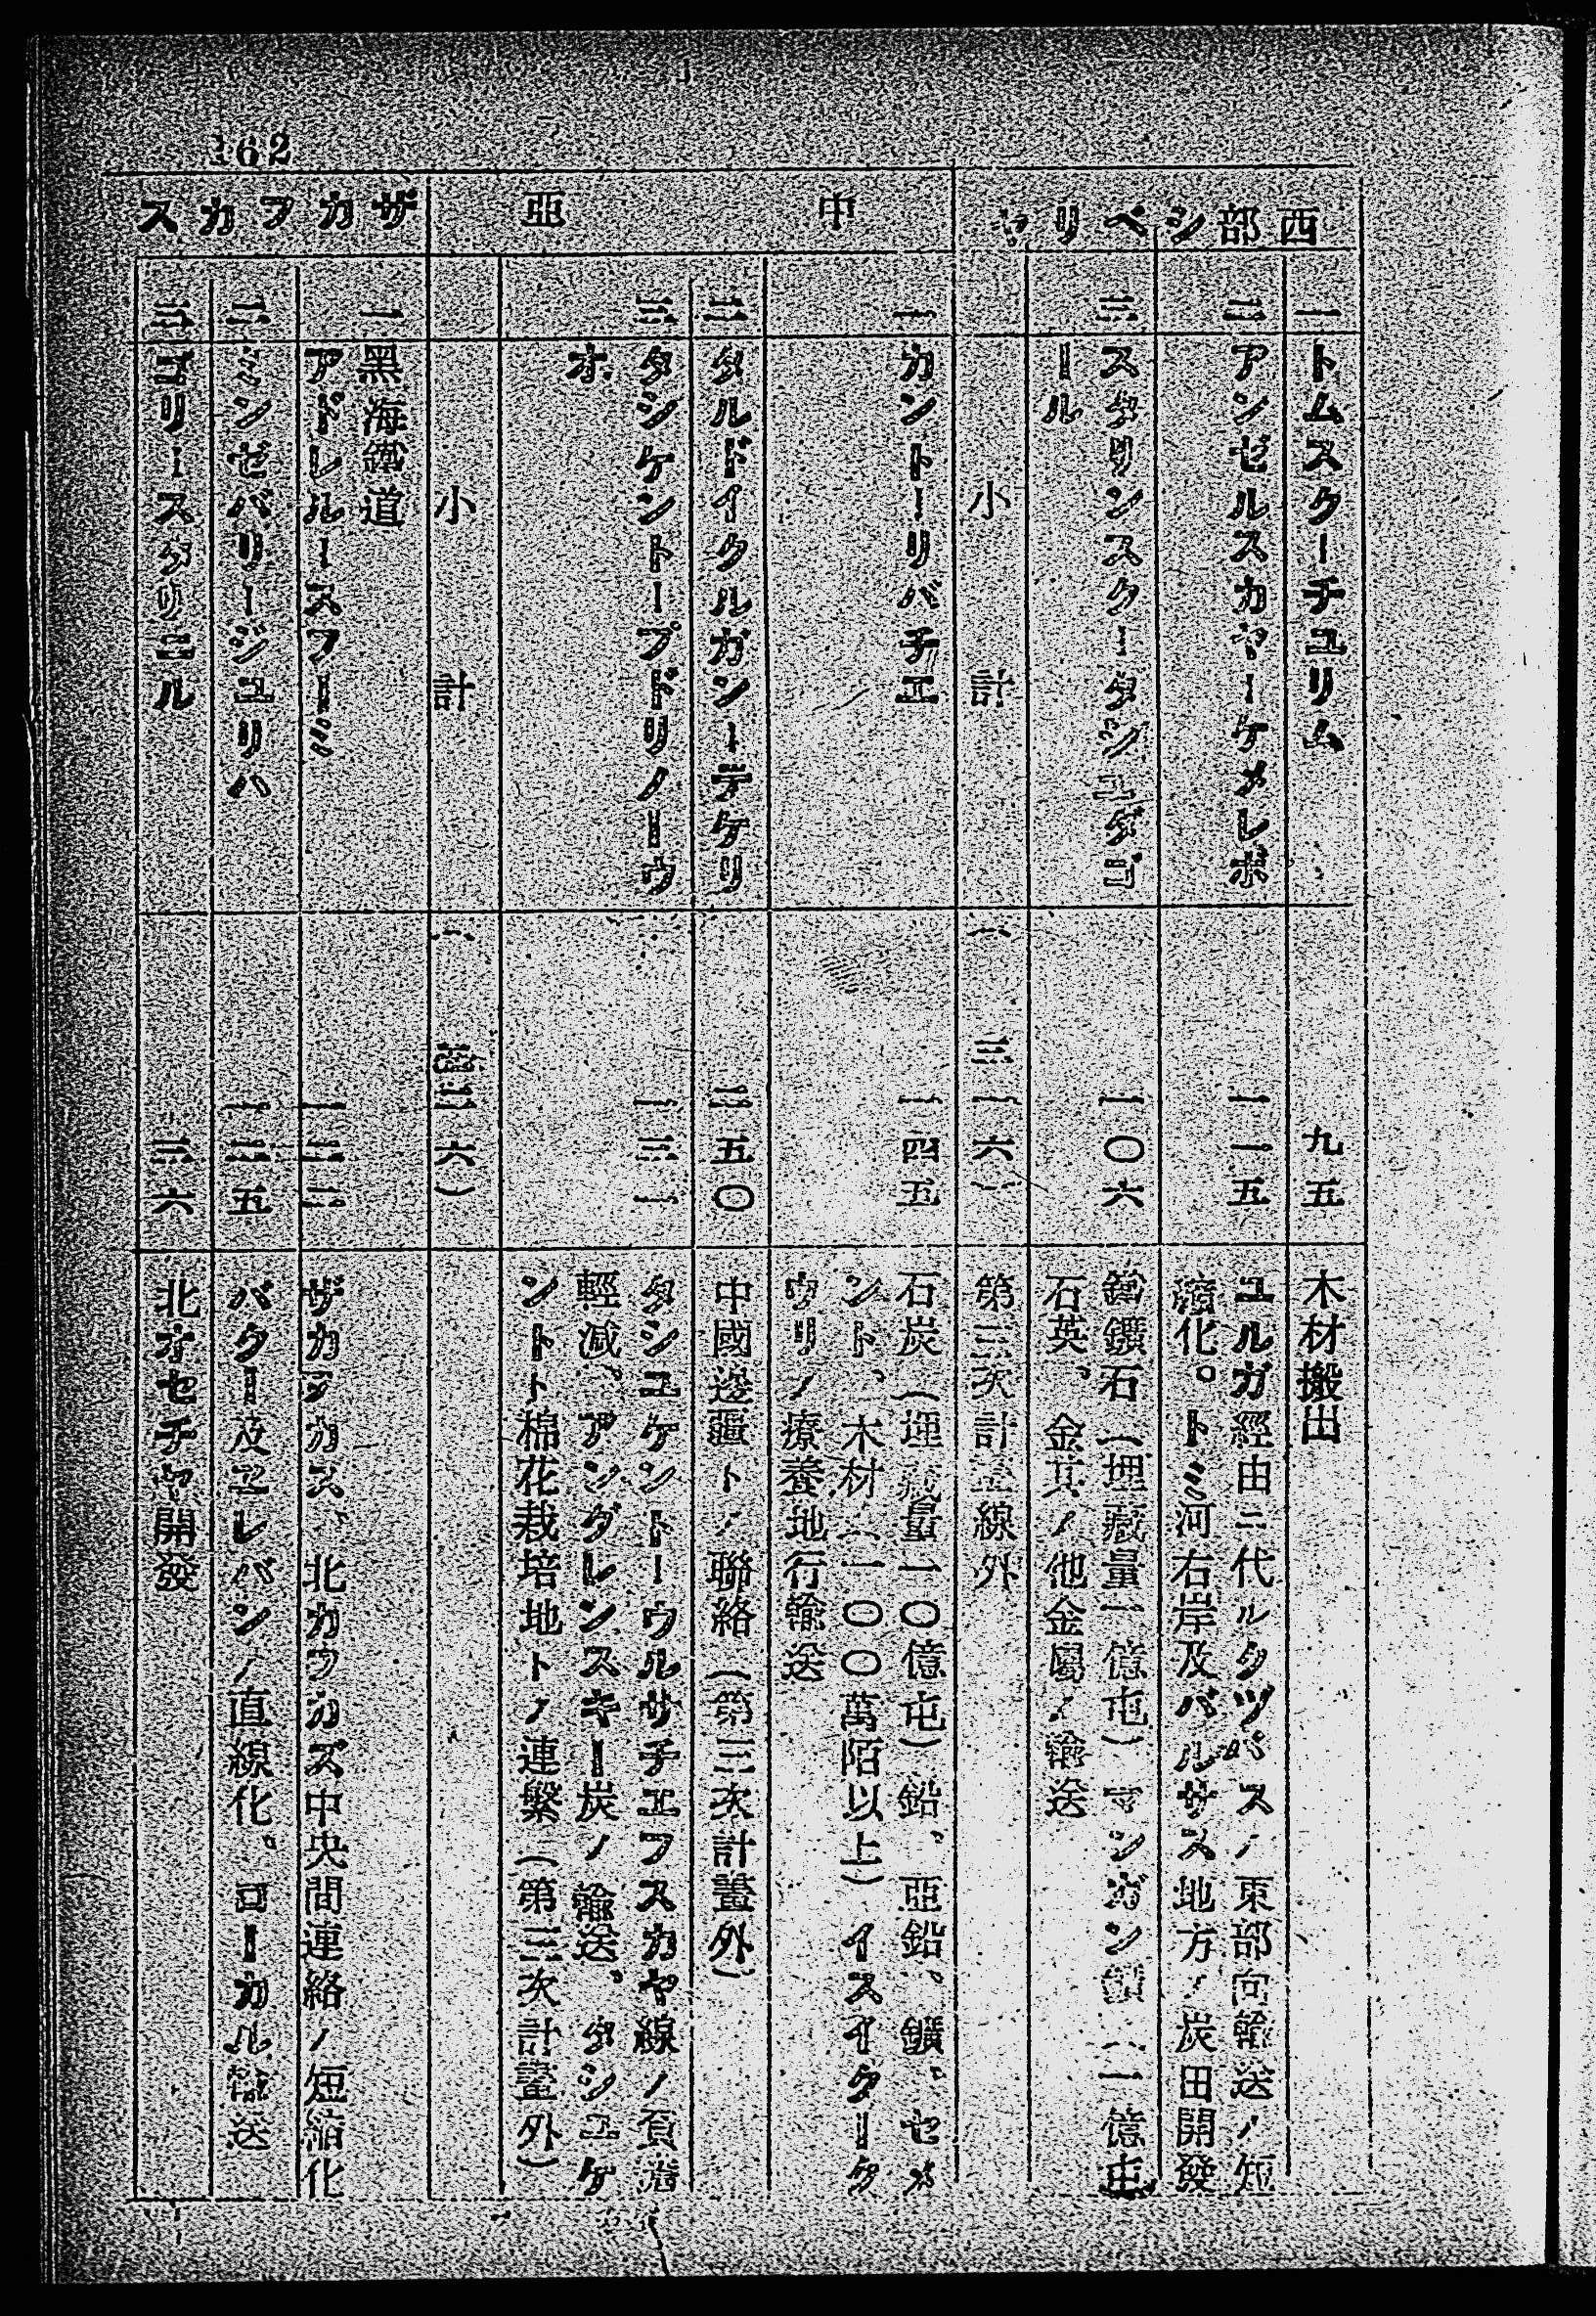 162
西部シベリヤ
一
トムスク―チユリム
九五
木材搬出
二
アンゼルスカヤ―ケメレボ
一一五
ユルガ經由ニ代ルタツパスノ東部向輸送ノ短
縮化。トミ河右岸及バルザス地方ノ炭田開發
三
スタリンスク―タシユダゴ
ール
一〇六
鐵鑛石(埋藏量一億屯)マンガン鑛(一億屯)
石英、金其ノ他金屬ノ輸送
小計
(三一六)
第三次計畫線外
中亞
一
カント―リバチエ
一四五
石炭(埋藏量一〇億屯)鉛、亞鉛、鑛、セメ
ント、木材(一〇〇萬陌以上)イスイターク
ウリノ療養地行輸送
二
タルドイクルガン―テケリ
二五〇
中國邊疆トノ聯絡(第三次計畫外)
三
タシケント―プドリノーウ
オ
一三一
タシユケント―ウルサチエフスカヤ線ノ負擔
輕減、アングレンスキー炭ノ輸送、タシユケ
ントト棉花栽培地トノ連繫(第三次計畫外)
小計
二六)
ザカフカス
一
黑海鐵道
アドレル―スフーミ
一二二
ザカフカス、北カフカズ中央間連絡ノ短縮化
二
ミンゼバリ―ジユリハ
一二五
バクー及エレバンノ直線化。ローカル輸送
三
ゴリ―スタリニル
三六
北オセチヤ開發